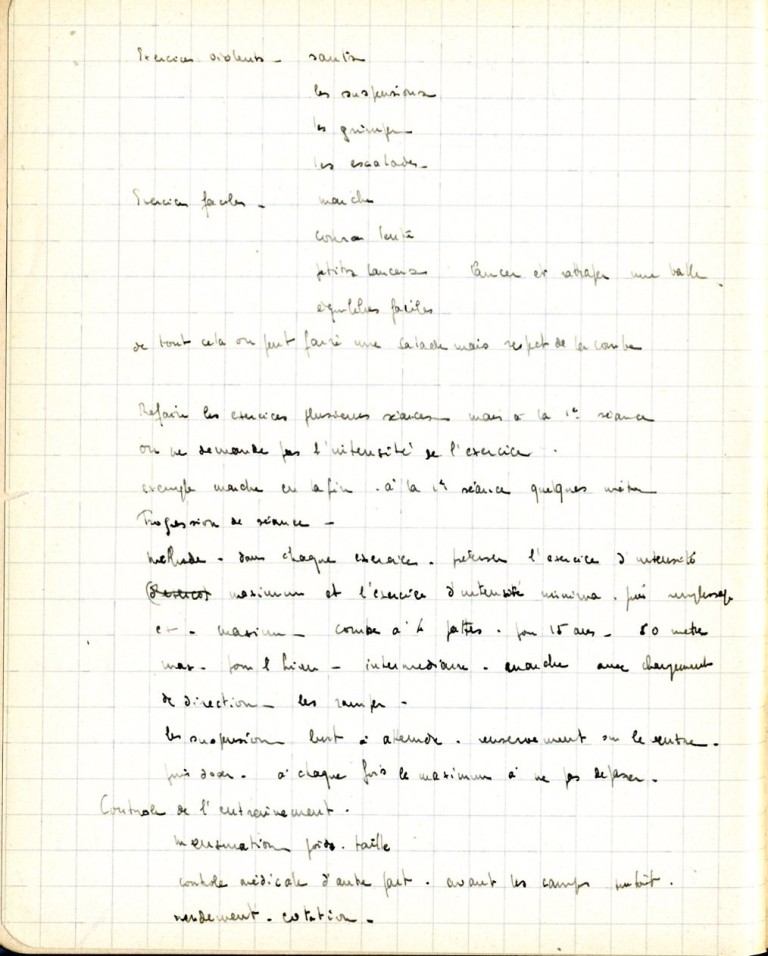 Exercices violents - sauts
les suspensions
les grimper
les escalades -
Exercices faciles - marche
course lente
petits lancers lancer et attraper une balle.
équilibres faciles
de tout cela on peut faire une salade mais respect de la courbe
Refaire les exercices plusieurs séances mais à la 1re séance
on ne demande pas l'intensité de l'exercice.
exemple marche en la fin . à la 1re séance quelques mètres
Progression de séance -
méthode - dans chaque exercice . préciser l'exercice d'intensité
maximum et l'exercice d'intensité minima . puis remplissage
ex - maximum - course à 4 pattes . pour 15 ans - 50 mètres
max - intermédiaire . marche avec changement
de direction - les ramper -
les suspension but à atteindre . renversement sur le ventre .
puis doser . à chaque fois le maximum à ne pas dépasser .
Controle de l'entrainement .
mensuration poids . taille
controle médicale d'autre part . avant les camps surtout .
rendement . cotation -